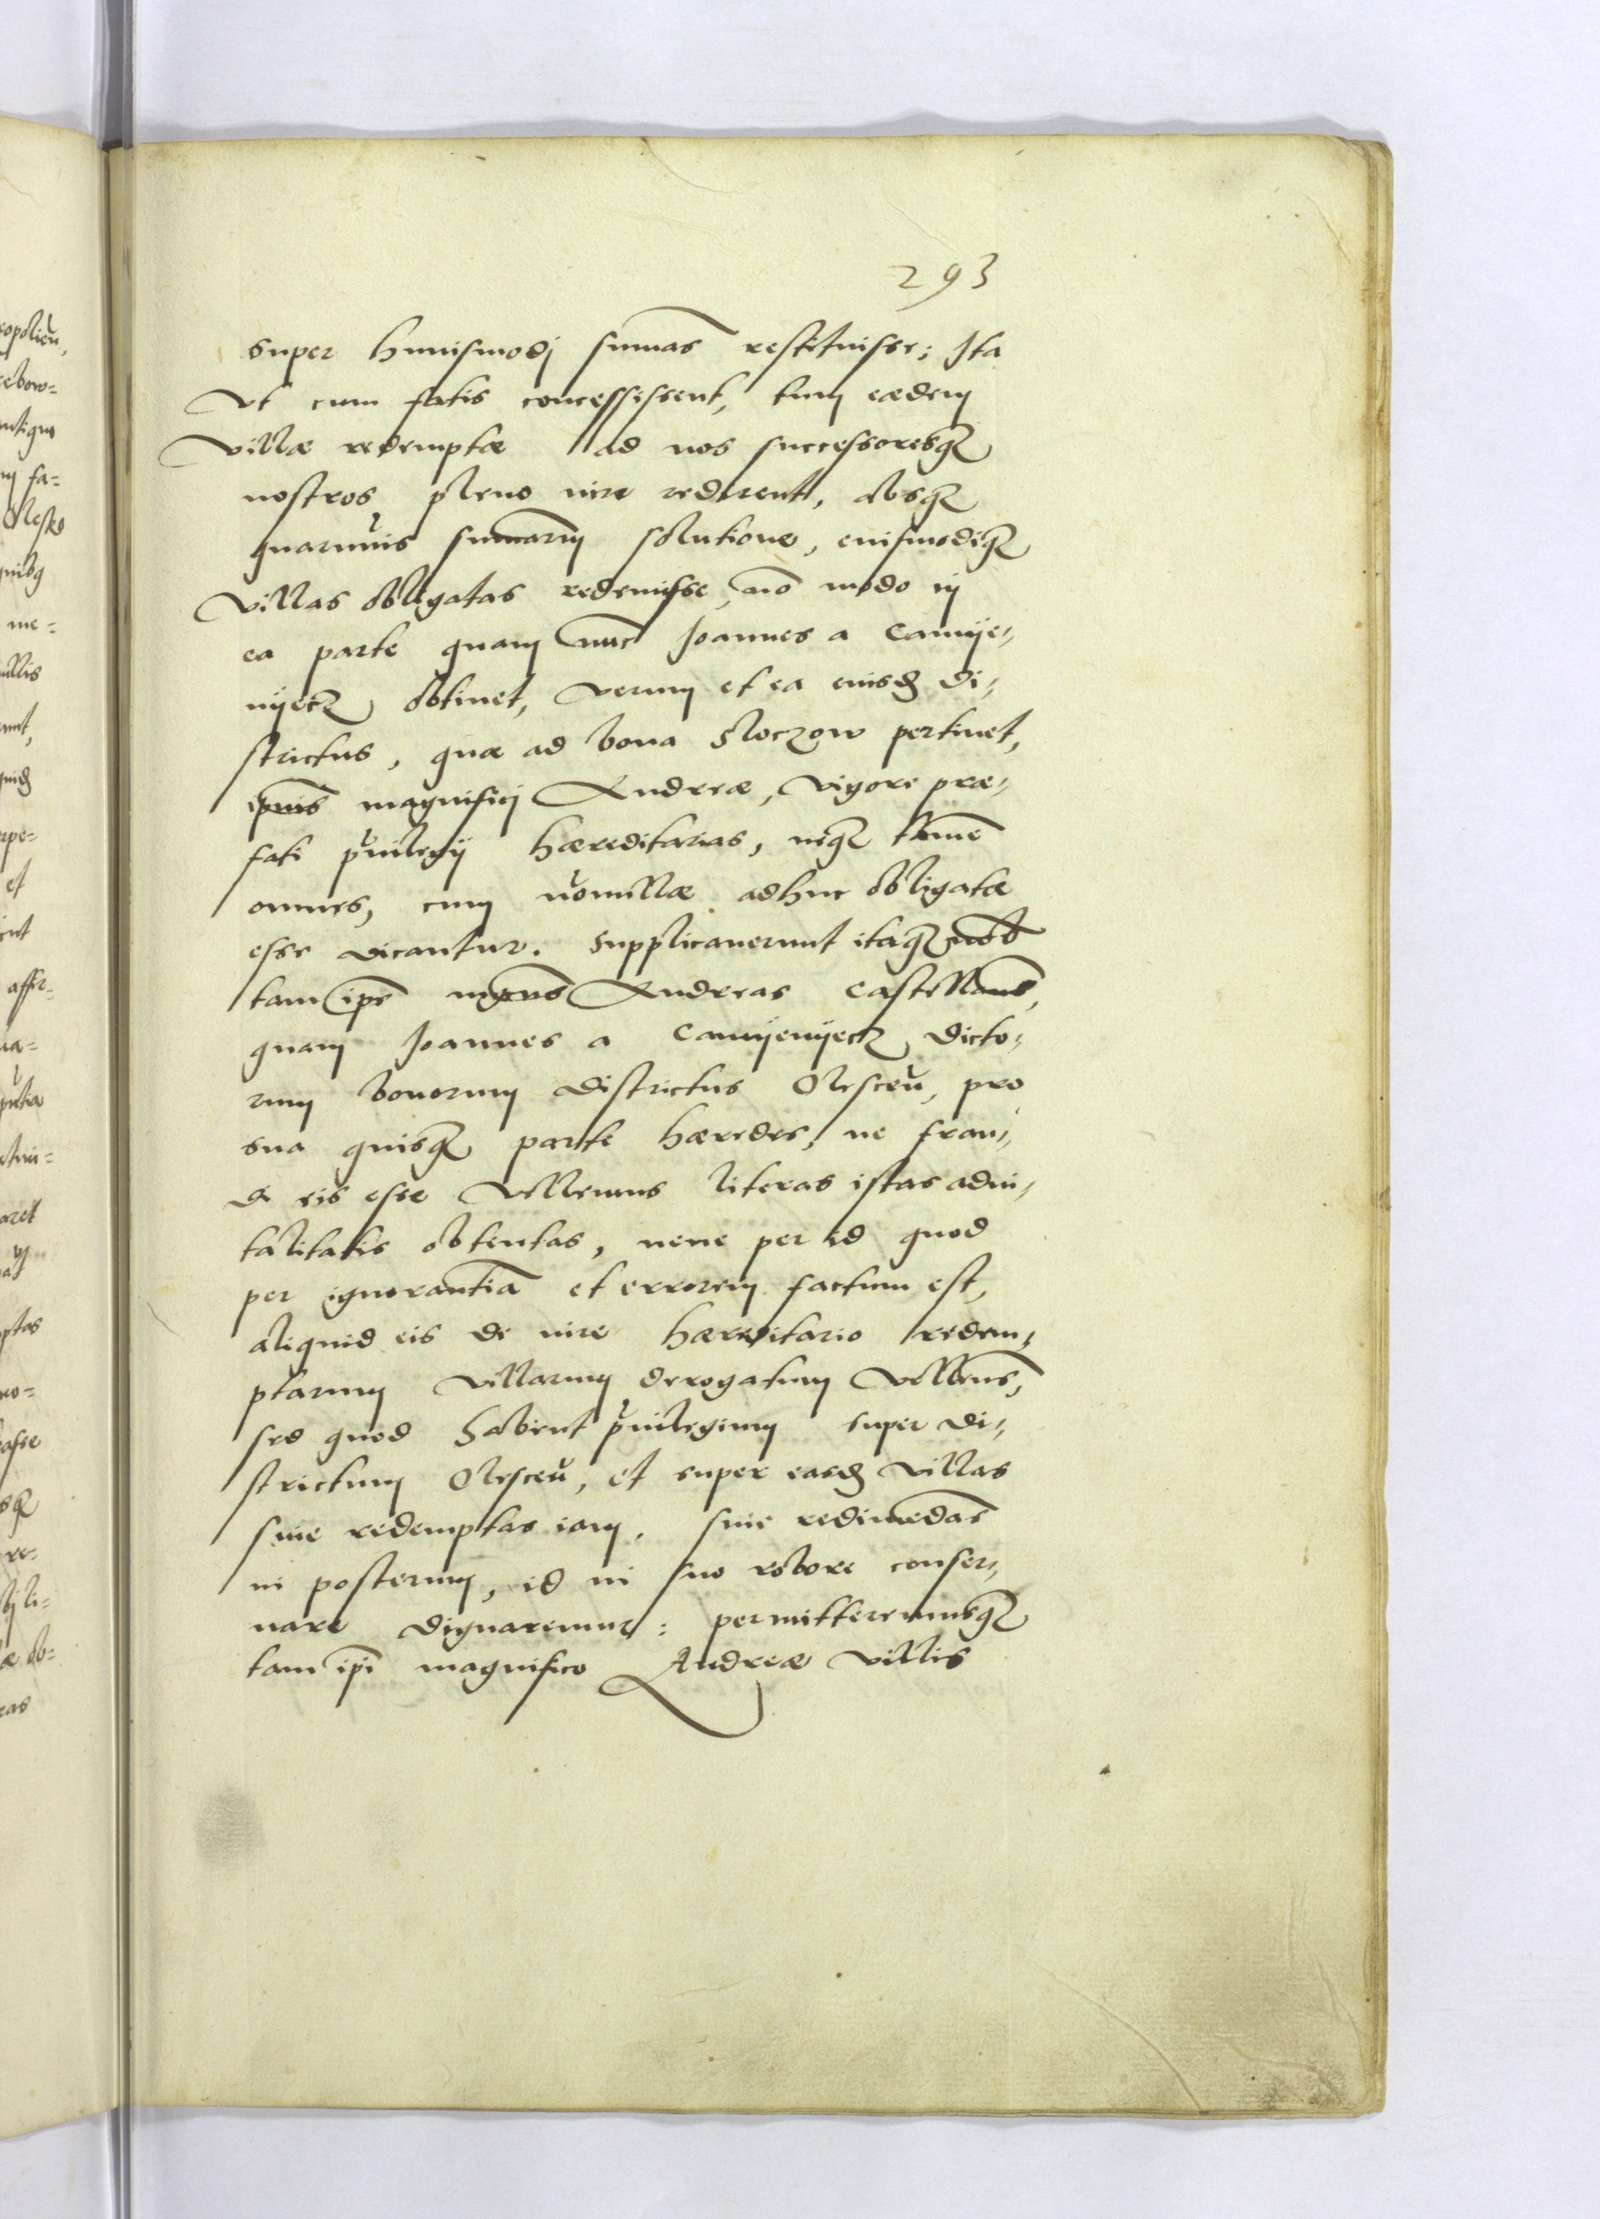 293
super huiusmodj sumas restituisse; Ita
vt cum fatis concessissent, tum eædem
villæ redemptæ ad nos successoresq3
nostros pleno iure redirent, absq3
quarumuis sumarum solutione, eiusmodiq3
villas obligatas redemisse, nō modo in
ea parte quam nunc Joannes a Camÿe-
nÿecz obtinet, verum et ea eiusd di-
strictus, quæ ad bona Sloczow pertinet,
ipsius magnificj Andreæ, vigore præ-
fati priuilegij hæreditarias, neq3 tamē
omnes, cum nonnullæ adhuc obligatæ
esse dicantur. Supplicauerunt itaq3 nob
tam ipse mgcus Andreas Castellanus,
quam Joannes a Camÿenÿecz, dicto-
rum bonorum districtus Olescen, pro
sua quisq3 parte hæredes, ne frau-
di eis esse vellemus literas istas adui-
talitatis obtentas, neue per id quod
per ignorantiā et errorem factum est,
aliquid eis de iure hæreditario redem-
ptarum villarum derogatum vellemus,
sed quod habent priuilegium super di-
strictum Olescen, et super easd villas
siue redemptas iam, siue redimēdas
in posterum, id in suo robore conser-
uare dignaremur: permitteremusq3
tam ipsi magnifico Andreæ villis